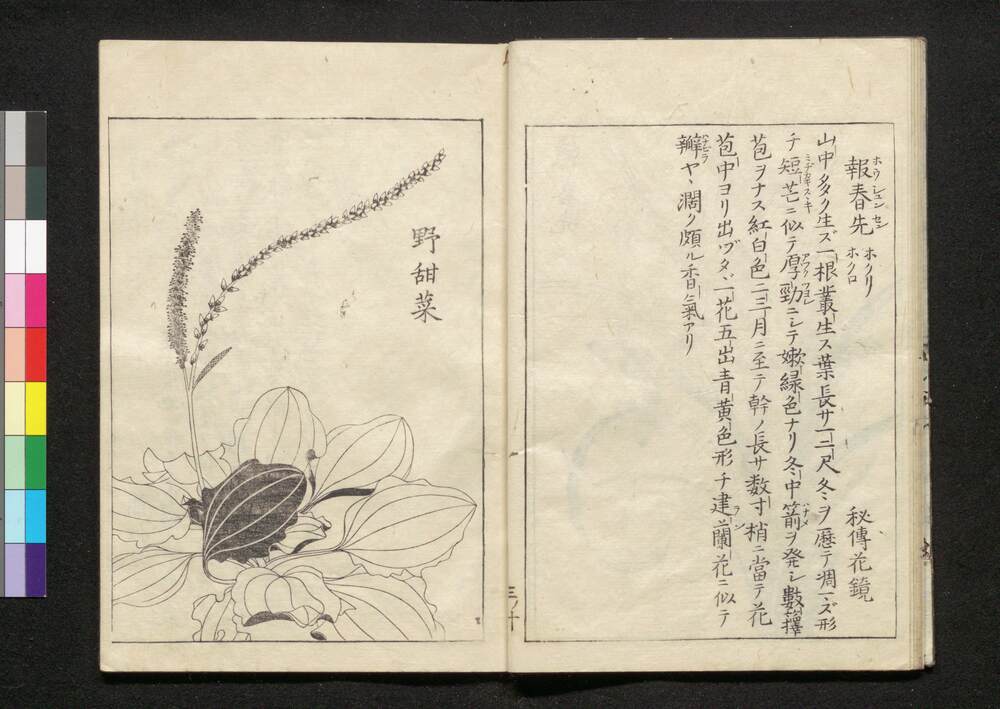 報春先 ホウシュンセン ホクリ ホクロ 秘傳花鏡
山中多ク生ズ一根叢生ス葉長サ一二尺冬ヲ歴テ凋マズ形
チ短芒ニ似テ厚勁ニシテ嫩緑色ナリ冬中箭ヲ発シ數籜
苞ヲナス紅白色二三月ニ至テ幹ノ長サ数寸梢ニ當テ花
苞中ヨリ出ヅタヾ一花五出青黄色形チ建蘭花ニ似テ
瓣ヤヽ濶ク頗ル香氣アリ
野甜菜
三ノ十